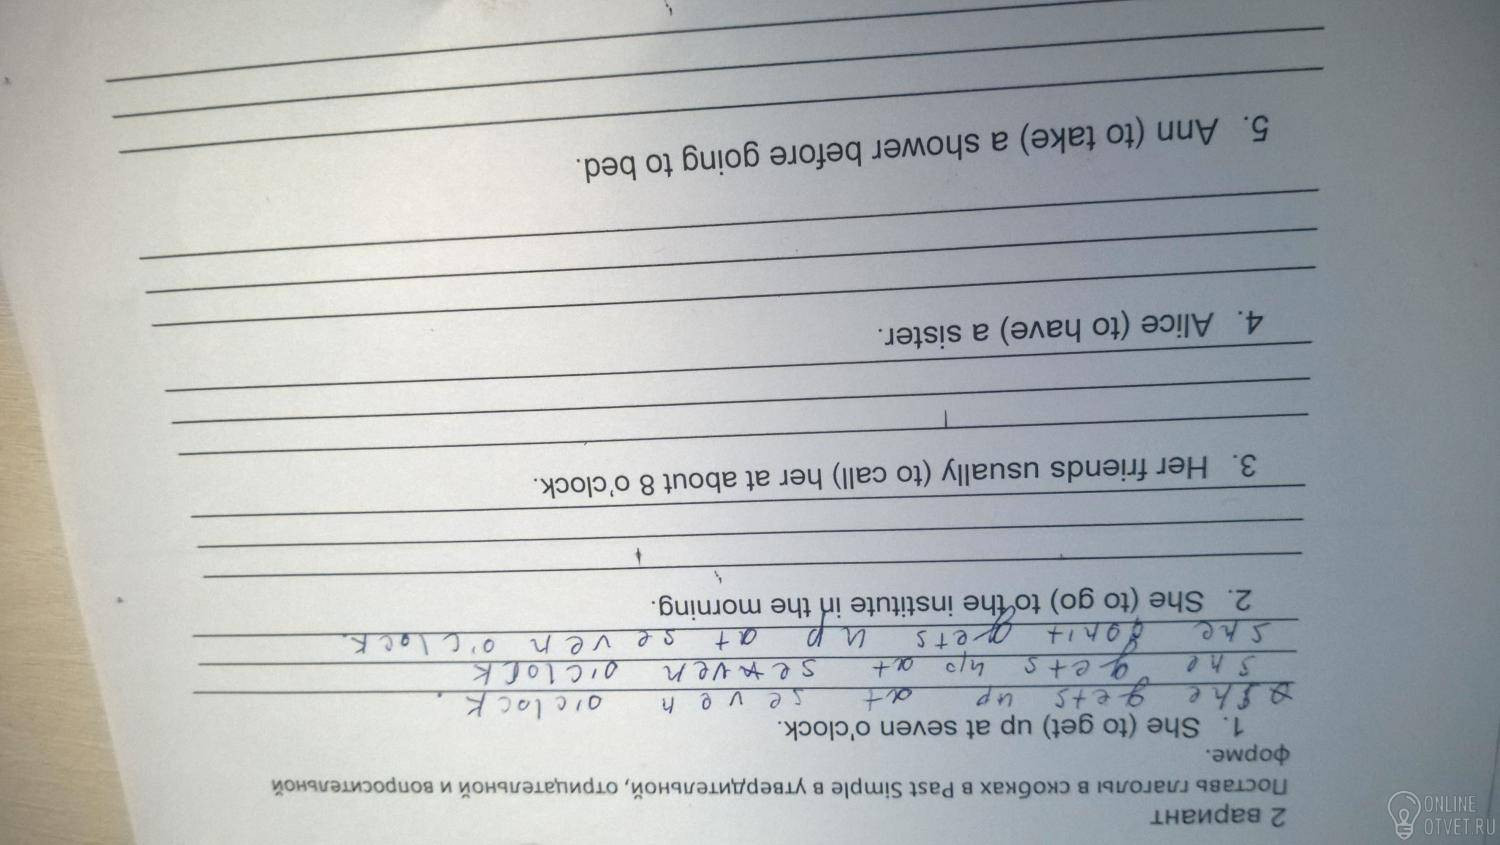 2 вариант
Поставь глаголы в скобках в Past Simple в утвердительной, отрицательной и вопросительной
форме.
1. She (to get) up at seven o'clock.
She gets up at seven o'clock.
she gets up at seven o'clock
she gonit gets up at seven o'clock.
2. She (to go) to the institute in the morning.
3. Her friends usually (to call) her at about 8 o'clock.
4. Alice (to have) a sister.
5. Ann (to take) a shower before going to bed.
ONLINE
OTVET.RU